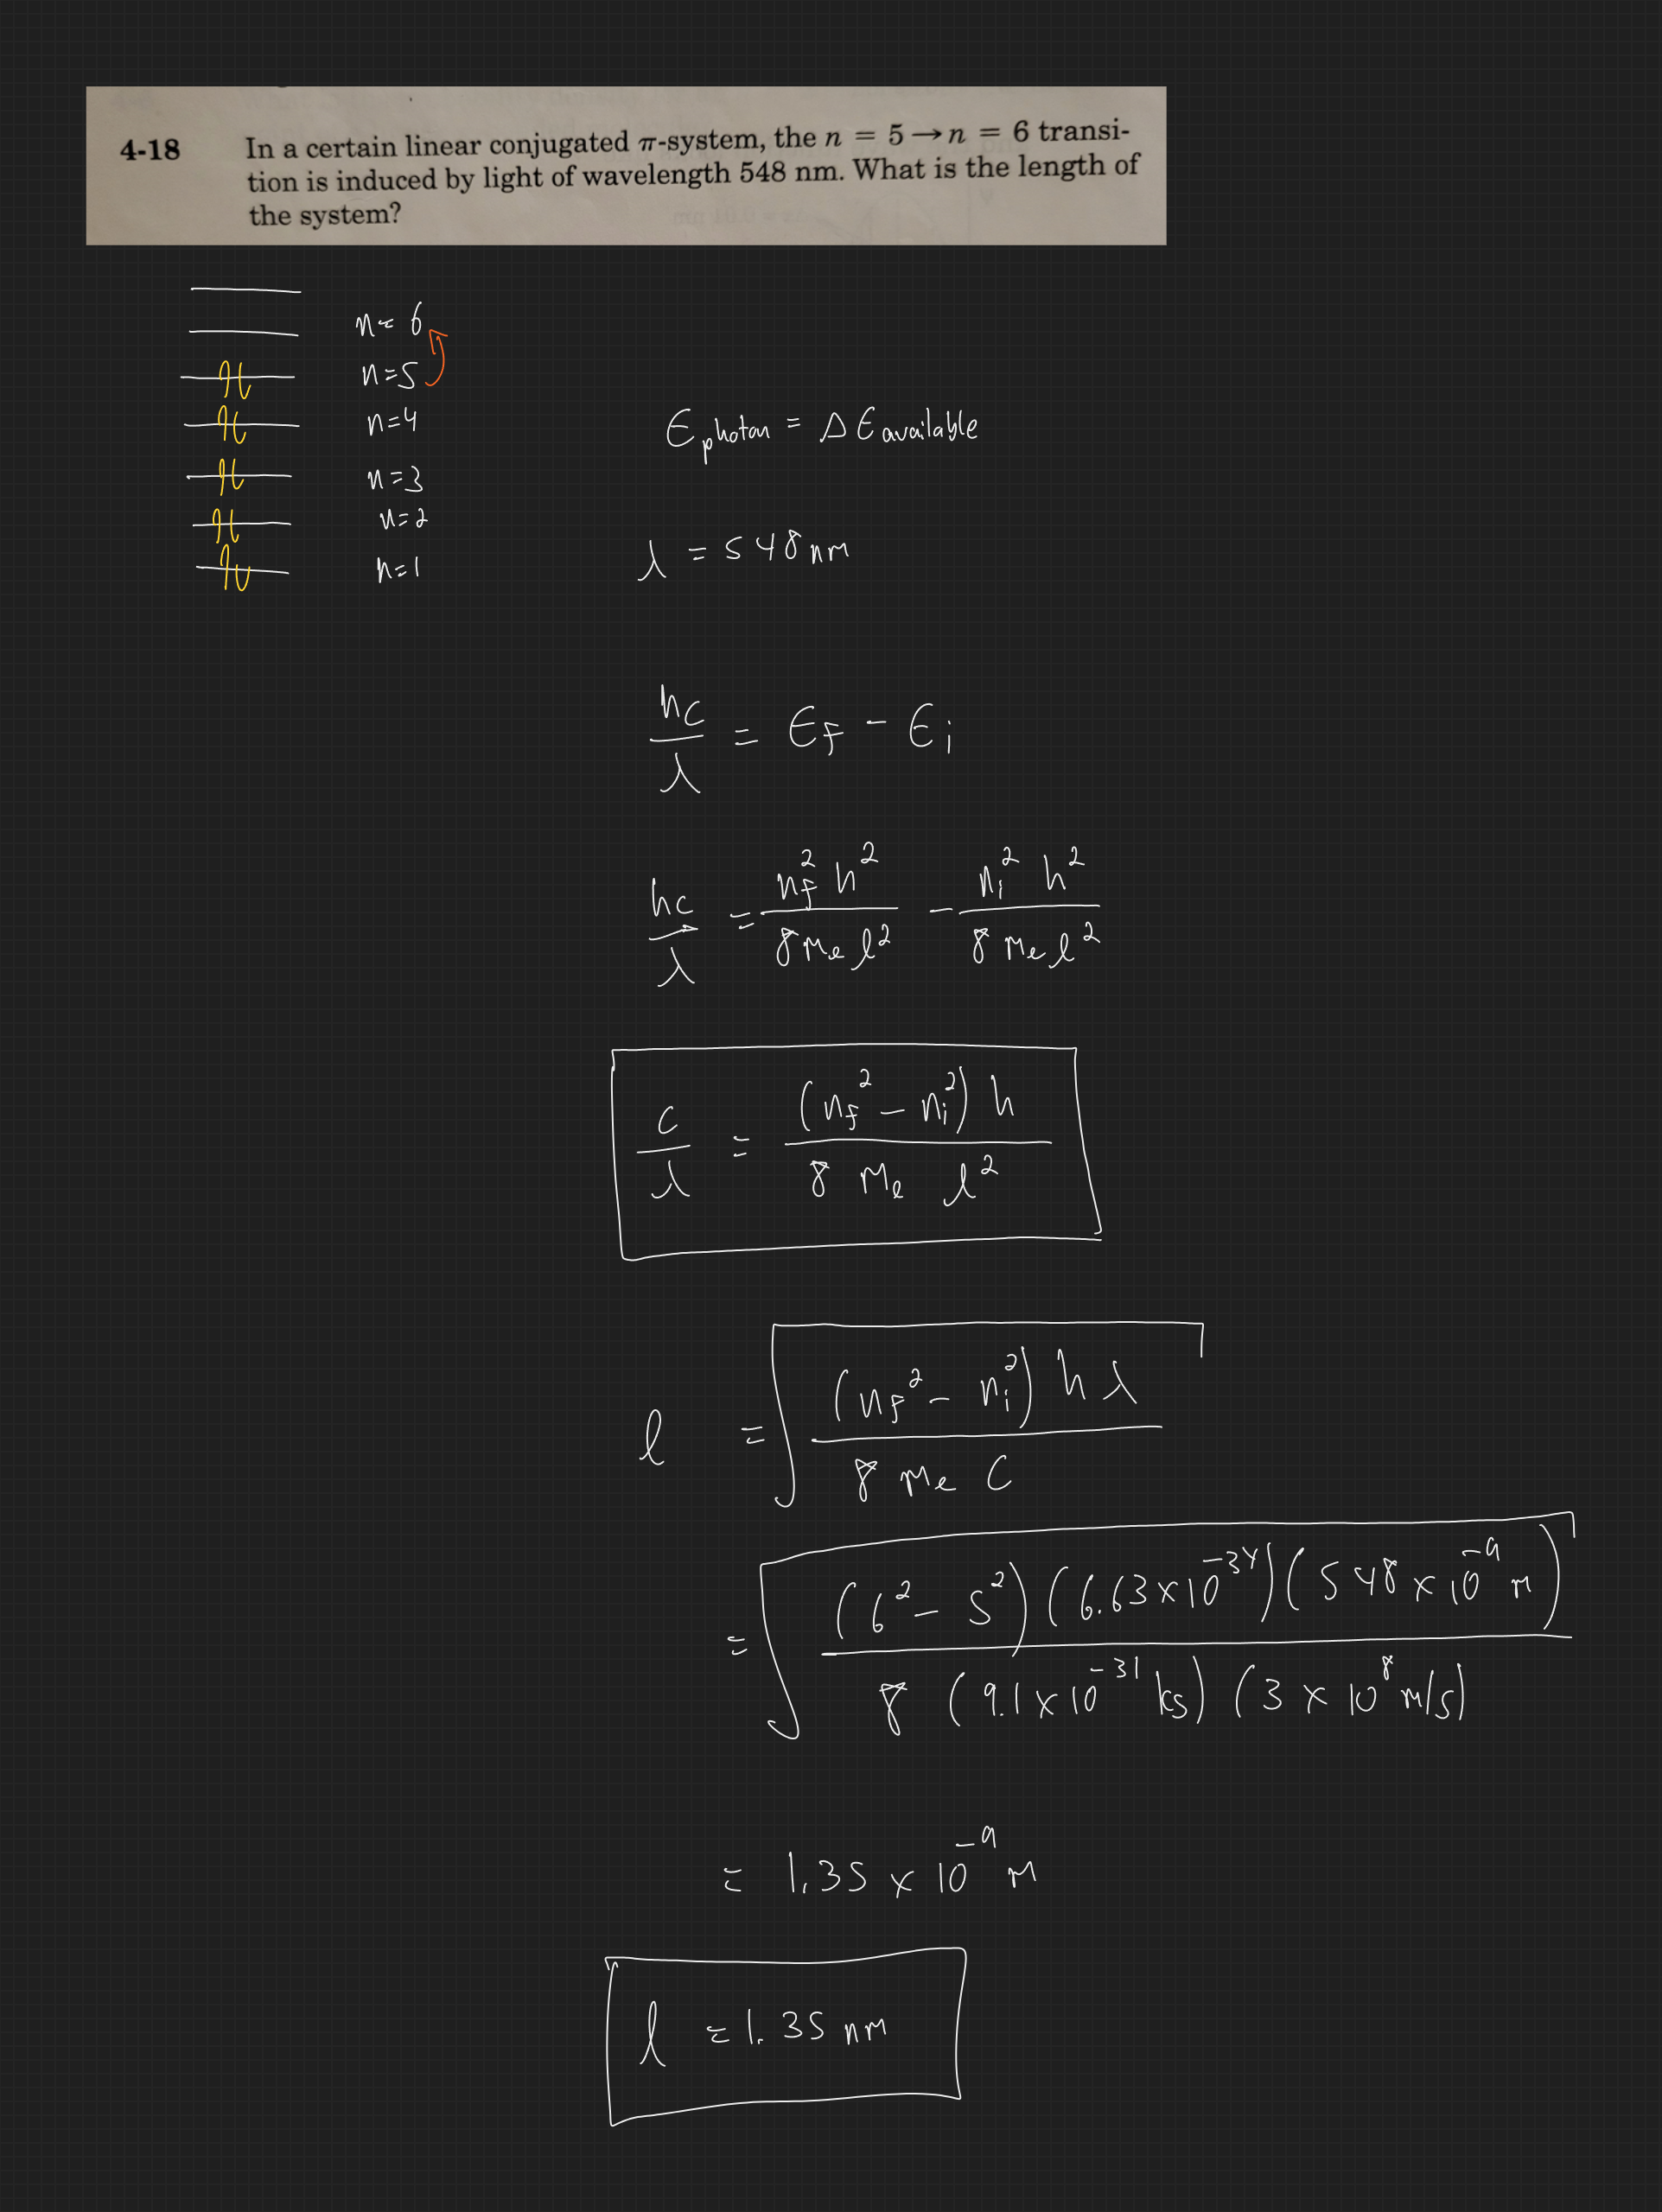 4-18 In a certain linear conjugated π-system, the n = 5 → n = 6 transi-
tion is induced by light of wavelength 548 nm. What is the length of
the system?
n = 6
n = 5
n = 4
n = 3
n = 2
n = 1
E photon = Δ E available
λ = 548 nm
hc/λ = E_f - E_i
hc/λ = n_f² h² / 8 m_e l² - n_i² h² / 8 m_e l²
c/λ = (n_f² - n_i²) h / 8 m_e l²
l = √((n_f² - n_i²) h λ / 8 m_e c)
= √((6² - 5²)(6.63 x 10^-34)(548 x 10^-9 m) / 8 (9.1 x 10^-31 kg)(3 x 10^8 m/s))
= 1.35 x 10^-9 m
l = 1.35 nm